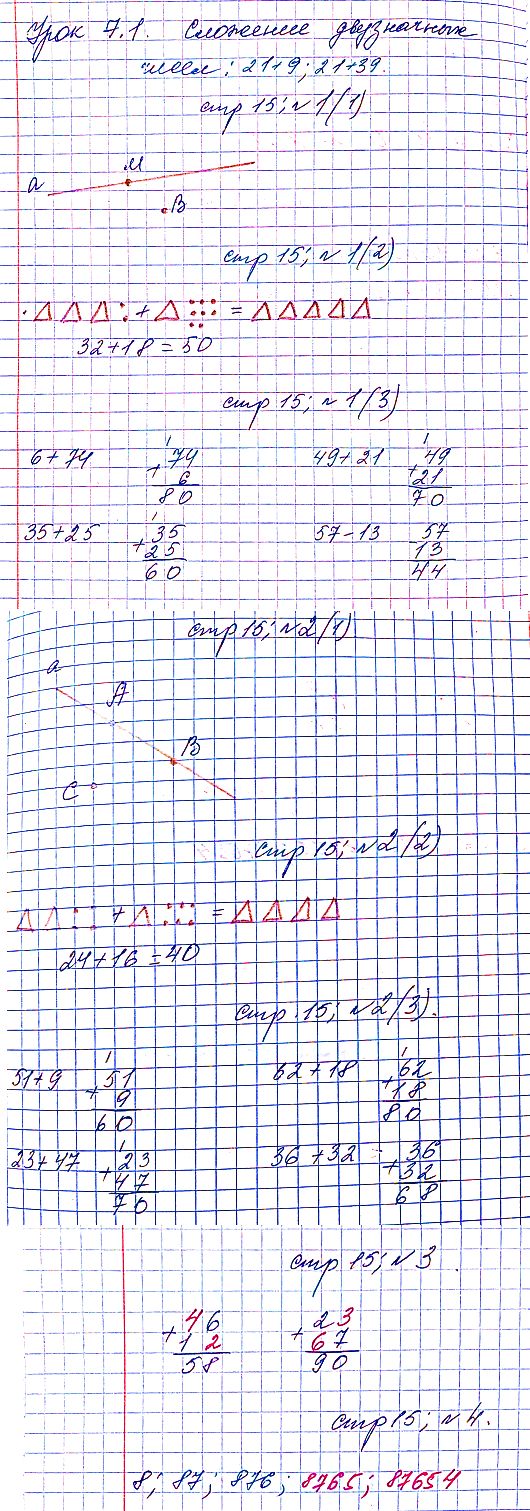 Урок 7.1. Сложение двузначных
чисел: 21+9; 21+39.
стр 15; № 1(1)
М
а
В
стр 15; № 1(2)
+ =
32+18 = 50
стр 15; № 1(3)
6+74
1
74
+
6
80
49+21
1
49
+
21
70
35+25
1
35
+
25
60
57-13
57
13
44
стр 15; №2(1)
а
А
В
С
стр 15; №2(2)
+ =
24+16=40
стр. 15; №2(3).
51+9
1
51
+
9
60
62+18
1
62
+
18
80
23+47
1
23
+
47
70
36+32 -
36
+
32
68
стр 15; № 3
46
+
12
58
23
+
67
90
стр 15; № 4.
8; 87; 876; 8765; 87654